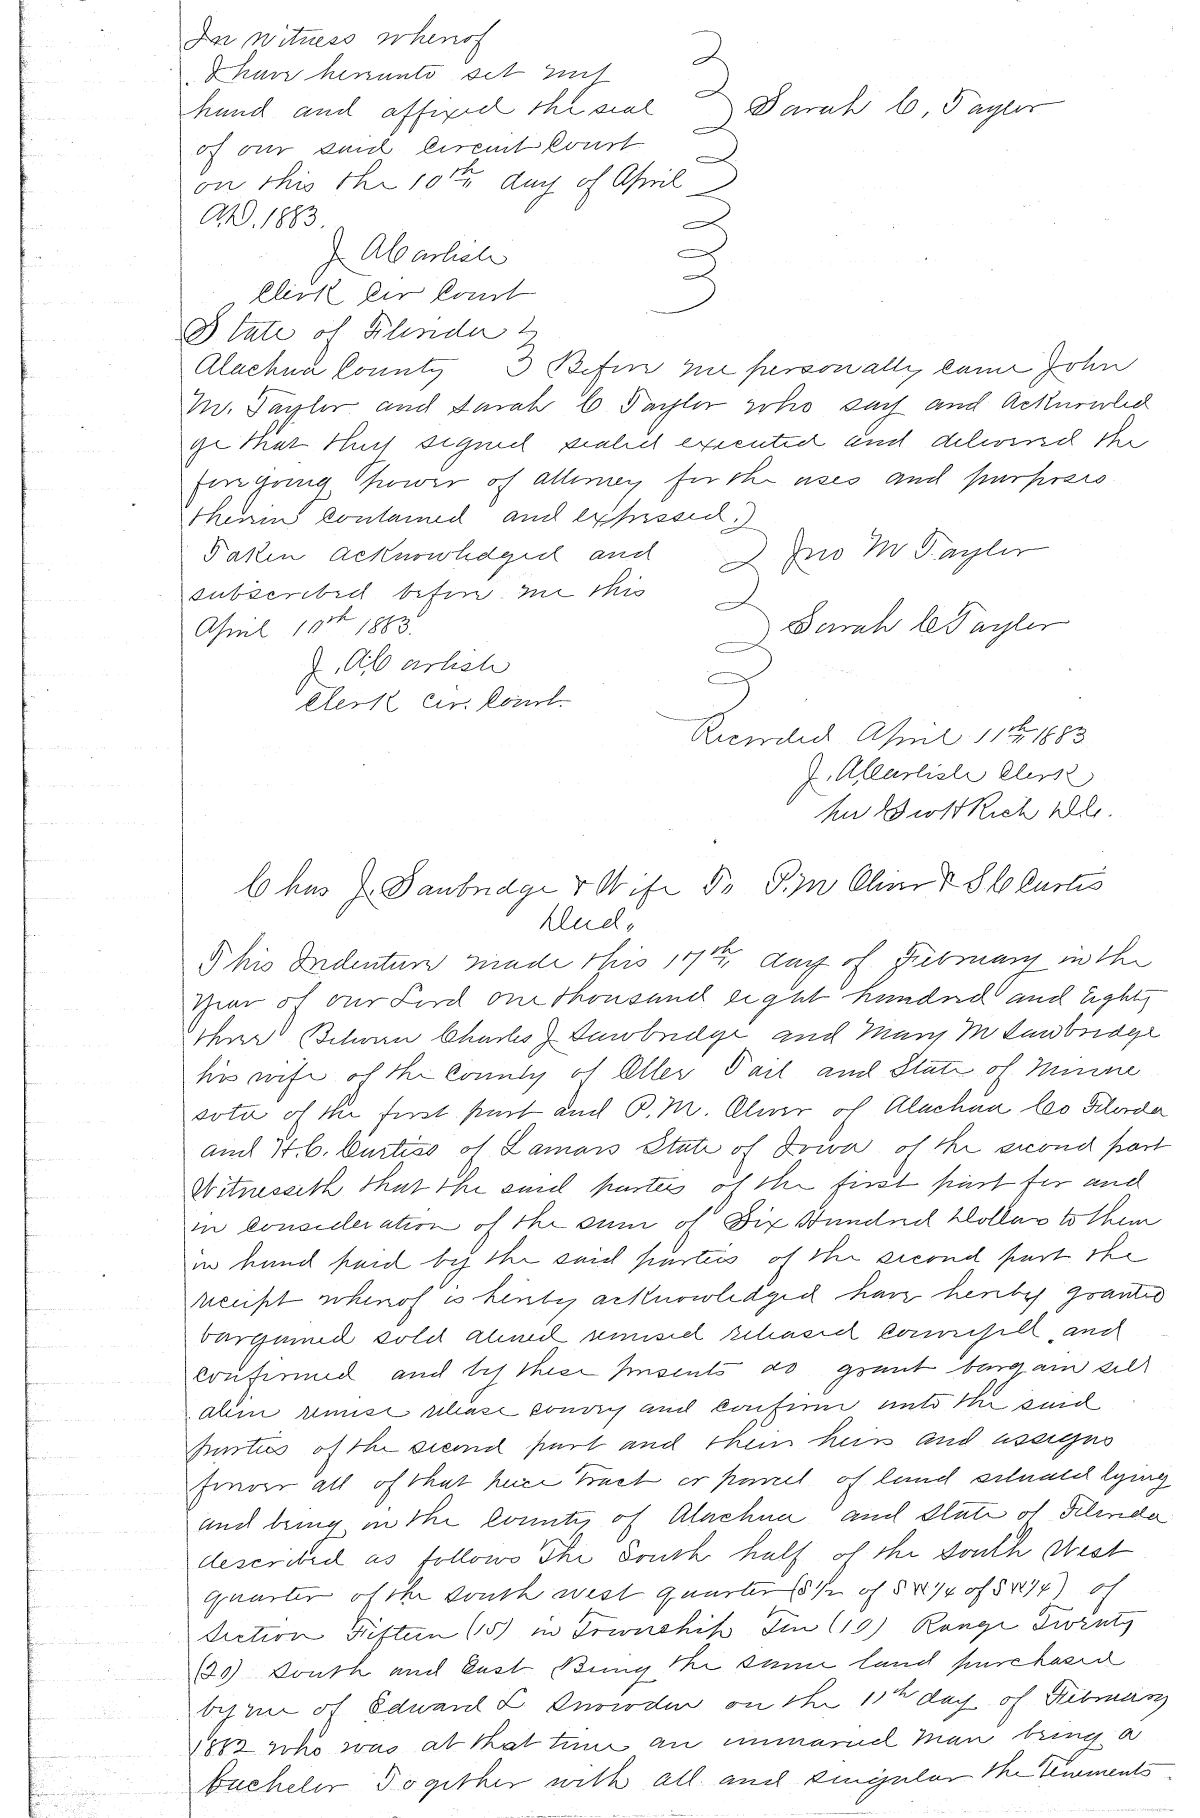 In witness whereof
I have hereunto set my
hand and affixed the seal Sarah C. Tayler
of our said Circuit Court
on this the 10th day of April
A.D. 1883.
J A Carlisle
Clerk Cir Court
State of Florida
Alachua County Before me personally came John
M. Tayler and Sarah C Tayler who say and Acknowled
ge that they signed sealed executed and delivered the
foregoing power of attorney for the uses and purposes
therein contained and expressed.
Taken acknowledged and Jno M Tayler
subscribed before me this
April 10th 1883. Sarah C Tayler
J. A. Carlisle
Clerk Cir. Court.
Recorded April 11th 1883
J. A. Carlisle Clerk
per Rich
Chas J. Sawbridge & Wife To P. M Oliver & H C Curtis
Deed.
This Indenture made this 17th day of February in the
Year of our Lord one thousand eight hundred and Eighty
three Between Charles J Sawbridge and Mary M Sawbridge
his wife of the County of Otter Tail and State of Minne
sota of the first part and P. M. Oliver of Alachua Co Florida
and H. C. Curtiss of Lamars State of Iowa of the second part
Witnesseth that the said parties of the first part for and
in consideration of the sum of Six Hundred Dollars to them
in hand paid by the said parties of the second part the
receipt whereof is hereby acknowledged have hereby granted
bargained sold aliened remised released conveyed and
confirmed and by these presents do grant bargain sell
alien remise release convey and confirm unto the said
parties of the second part and their heirs and assigns
forever all of that piece tract or parcel of land situated lying
and being in the County of Alachua and State of Florida
described as follows The South half of the South West
quarter of the South west quarter (S 1/2 of SW 1/4 of SW 1/4) of
Section Fifteen (15) in Township Ten (10) Range Twenty
(20) South and East Being the same land purchased
by me of Edward L Snowden on the 11th day of February
1882 who was at that time an unmarried man being a
bachelor Together with all and singular the tenements